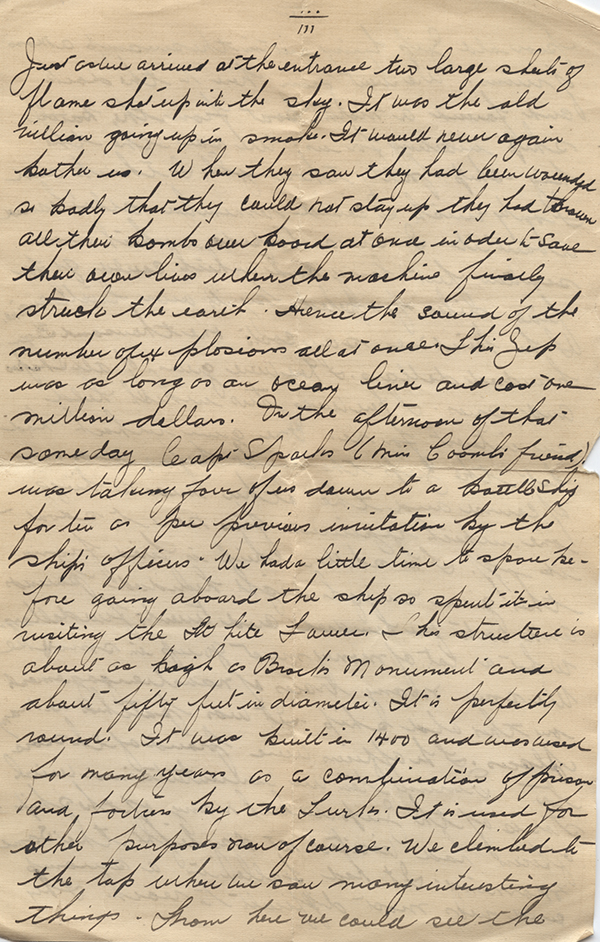 III
Just as we arrived at the entrance two large sheets of
flame shot up into the sky. It was the old
villian going up in smoke. It would never again
bother us. When they saw they had been wounded
so badly that they could not stay up they had thrown
all their bombs over board at once in oder to save
their own lives when the machine finely
struck the earth. Hence the sound of the
number of explosions all at once. This Zep
was as long as an ocean liner and cost one
million dollars. In the afternoon of that
same day Capt Sparks (Miss Coombs friend)
was taking four of us down to a battleship
for tea as per previous invitation by the
ship's officers. We had a little time to spare be-
fore going aboard the ship so spent it in
visiting the White Tower. This structure is
about as high as Brock's Monument and
about fifty feet in diameter. It is perfectly
round. It was built in 1400 and was used
for many years as a combination of prison
and fortress by the Turks. It is used for
other purposes now of course. We climbed to
the top where we saw many interesting
things. From here we could see the